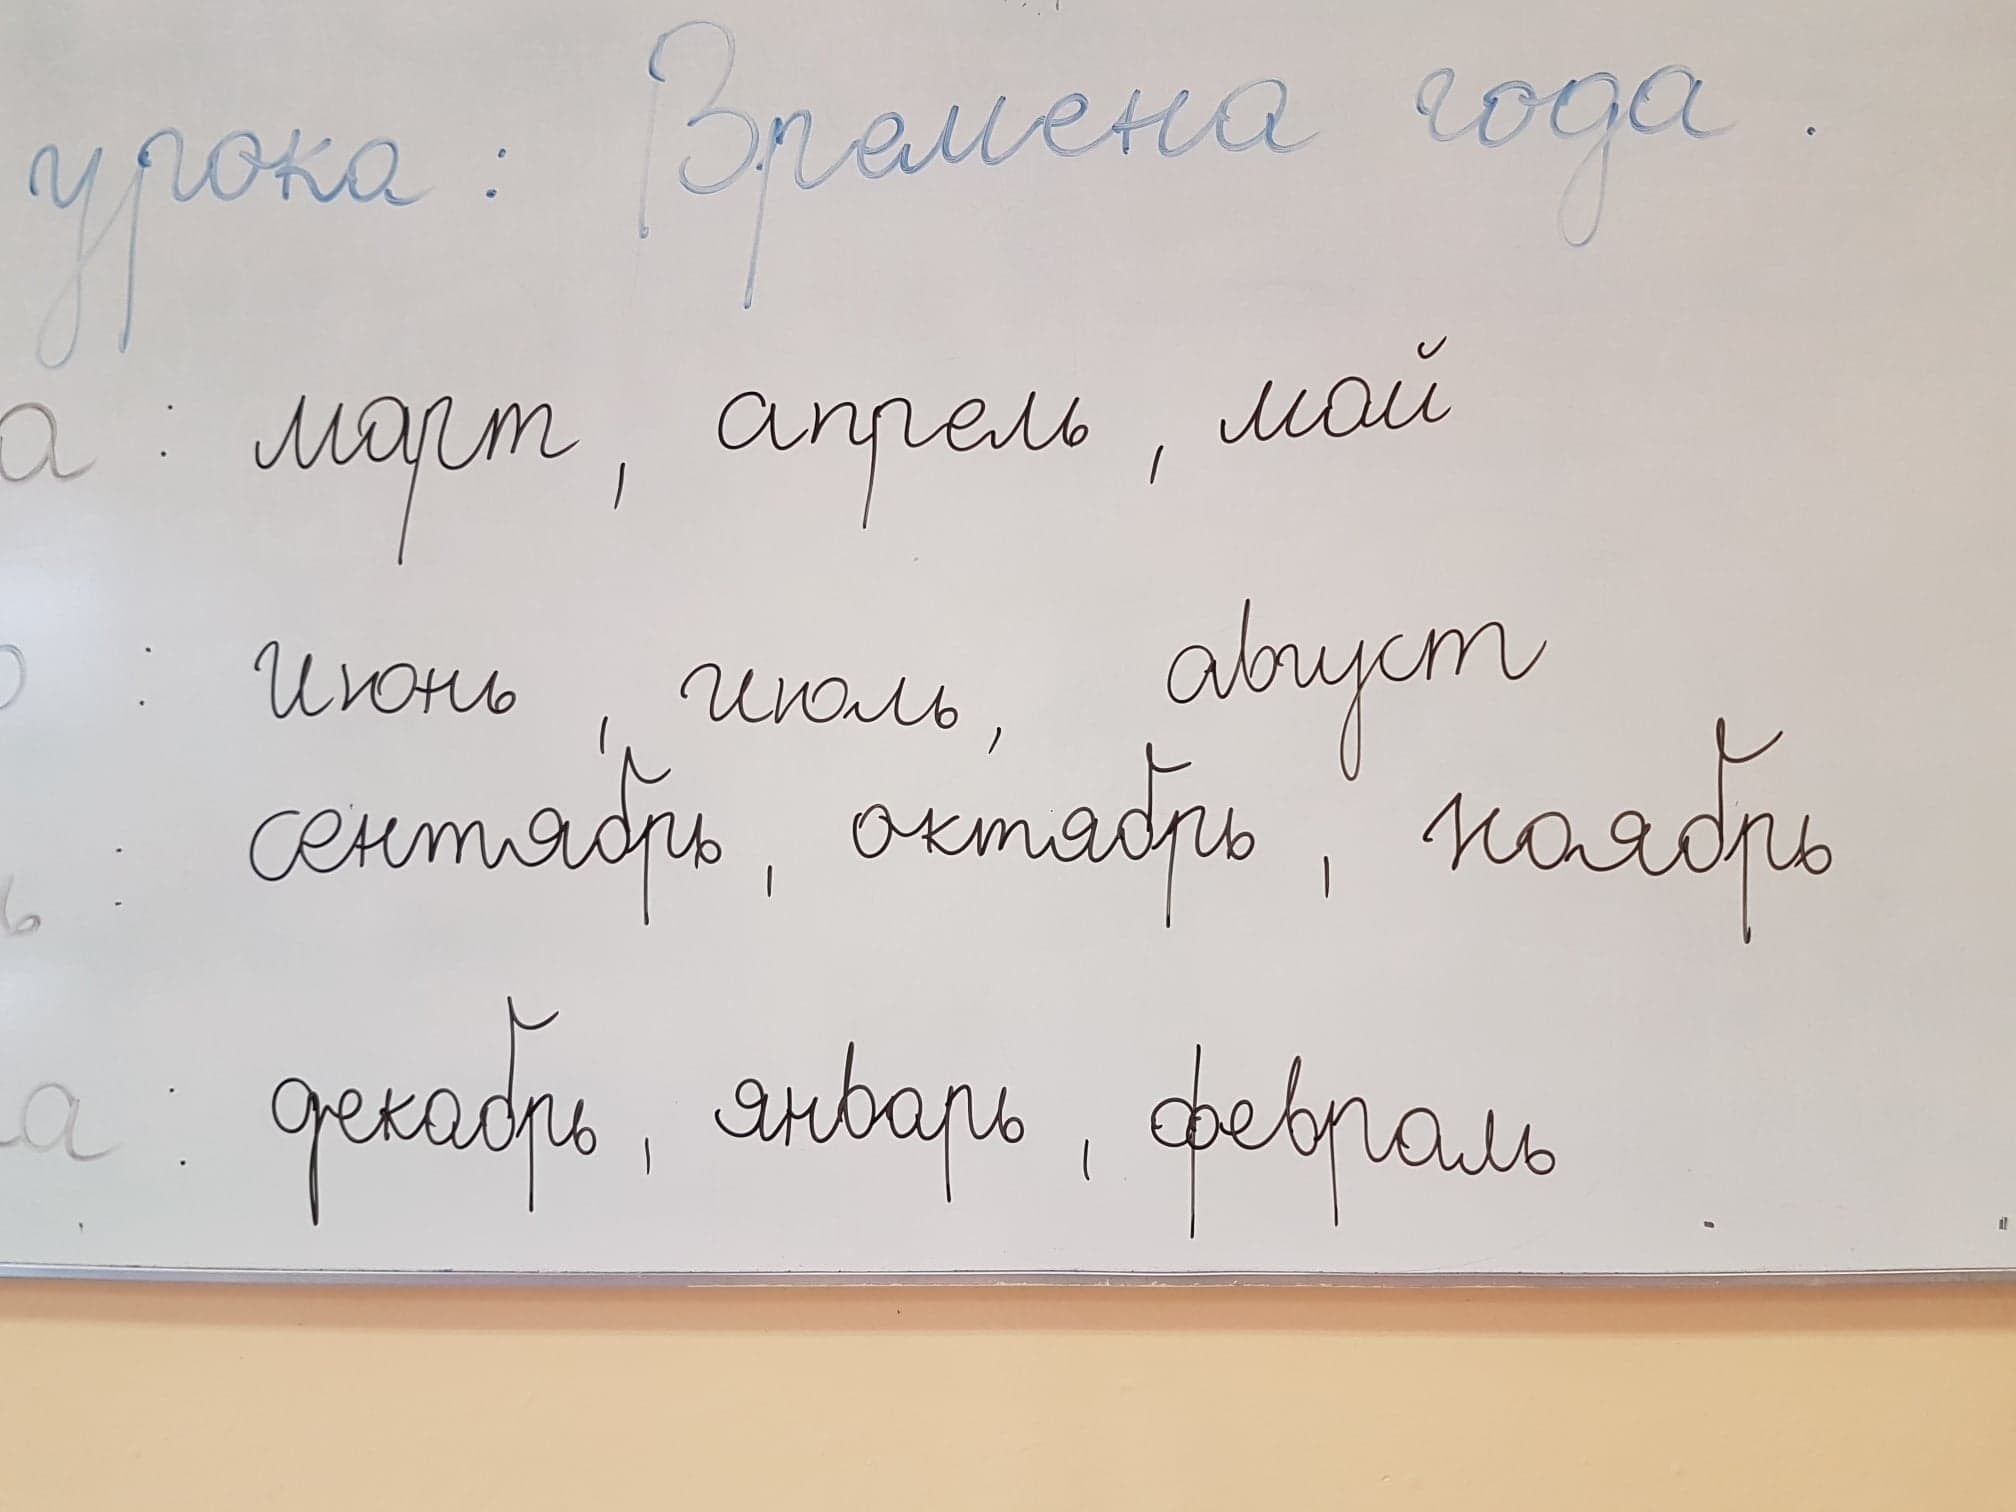 урока: Времена года.
а: март, апрель, май
о: июнь, июль, август
ь: сентябрь, октябрь, ноябрь
а: декабрь, январь, февраль